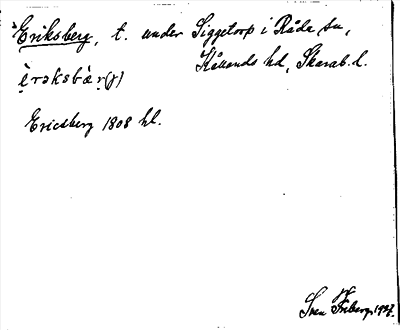 Eriksberg, t. under Siggetorp i Råda sn,
Kållands hd, Skarab. l.
èrəksbær(j)
Ericsberg 1808 hl.
Sven Friberg 1927.